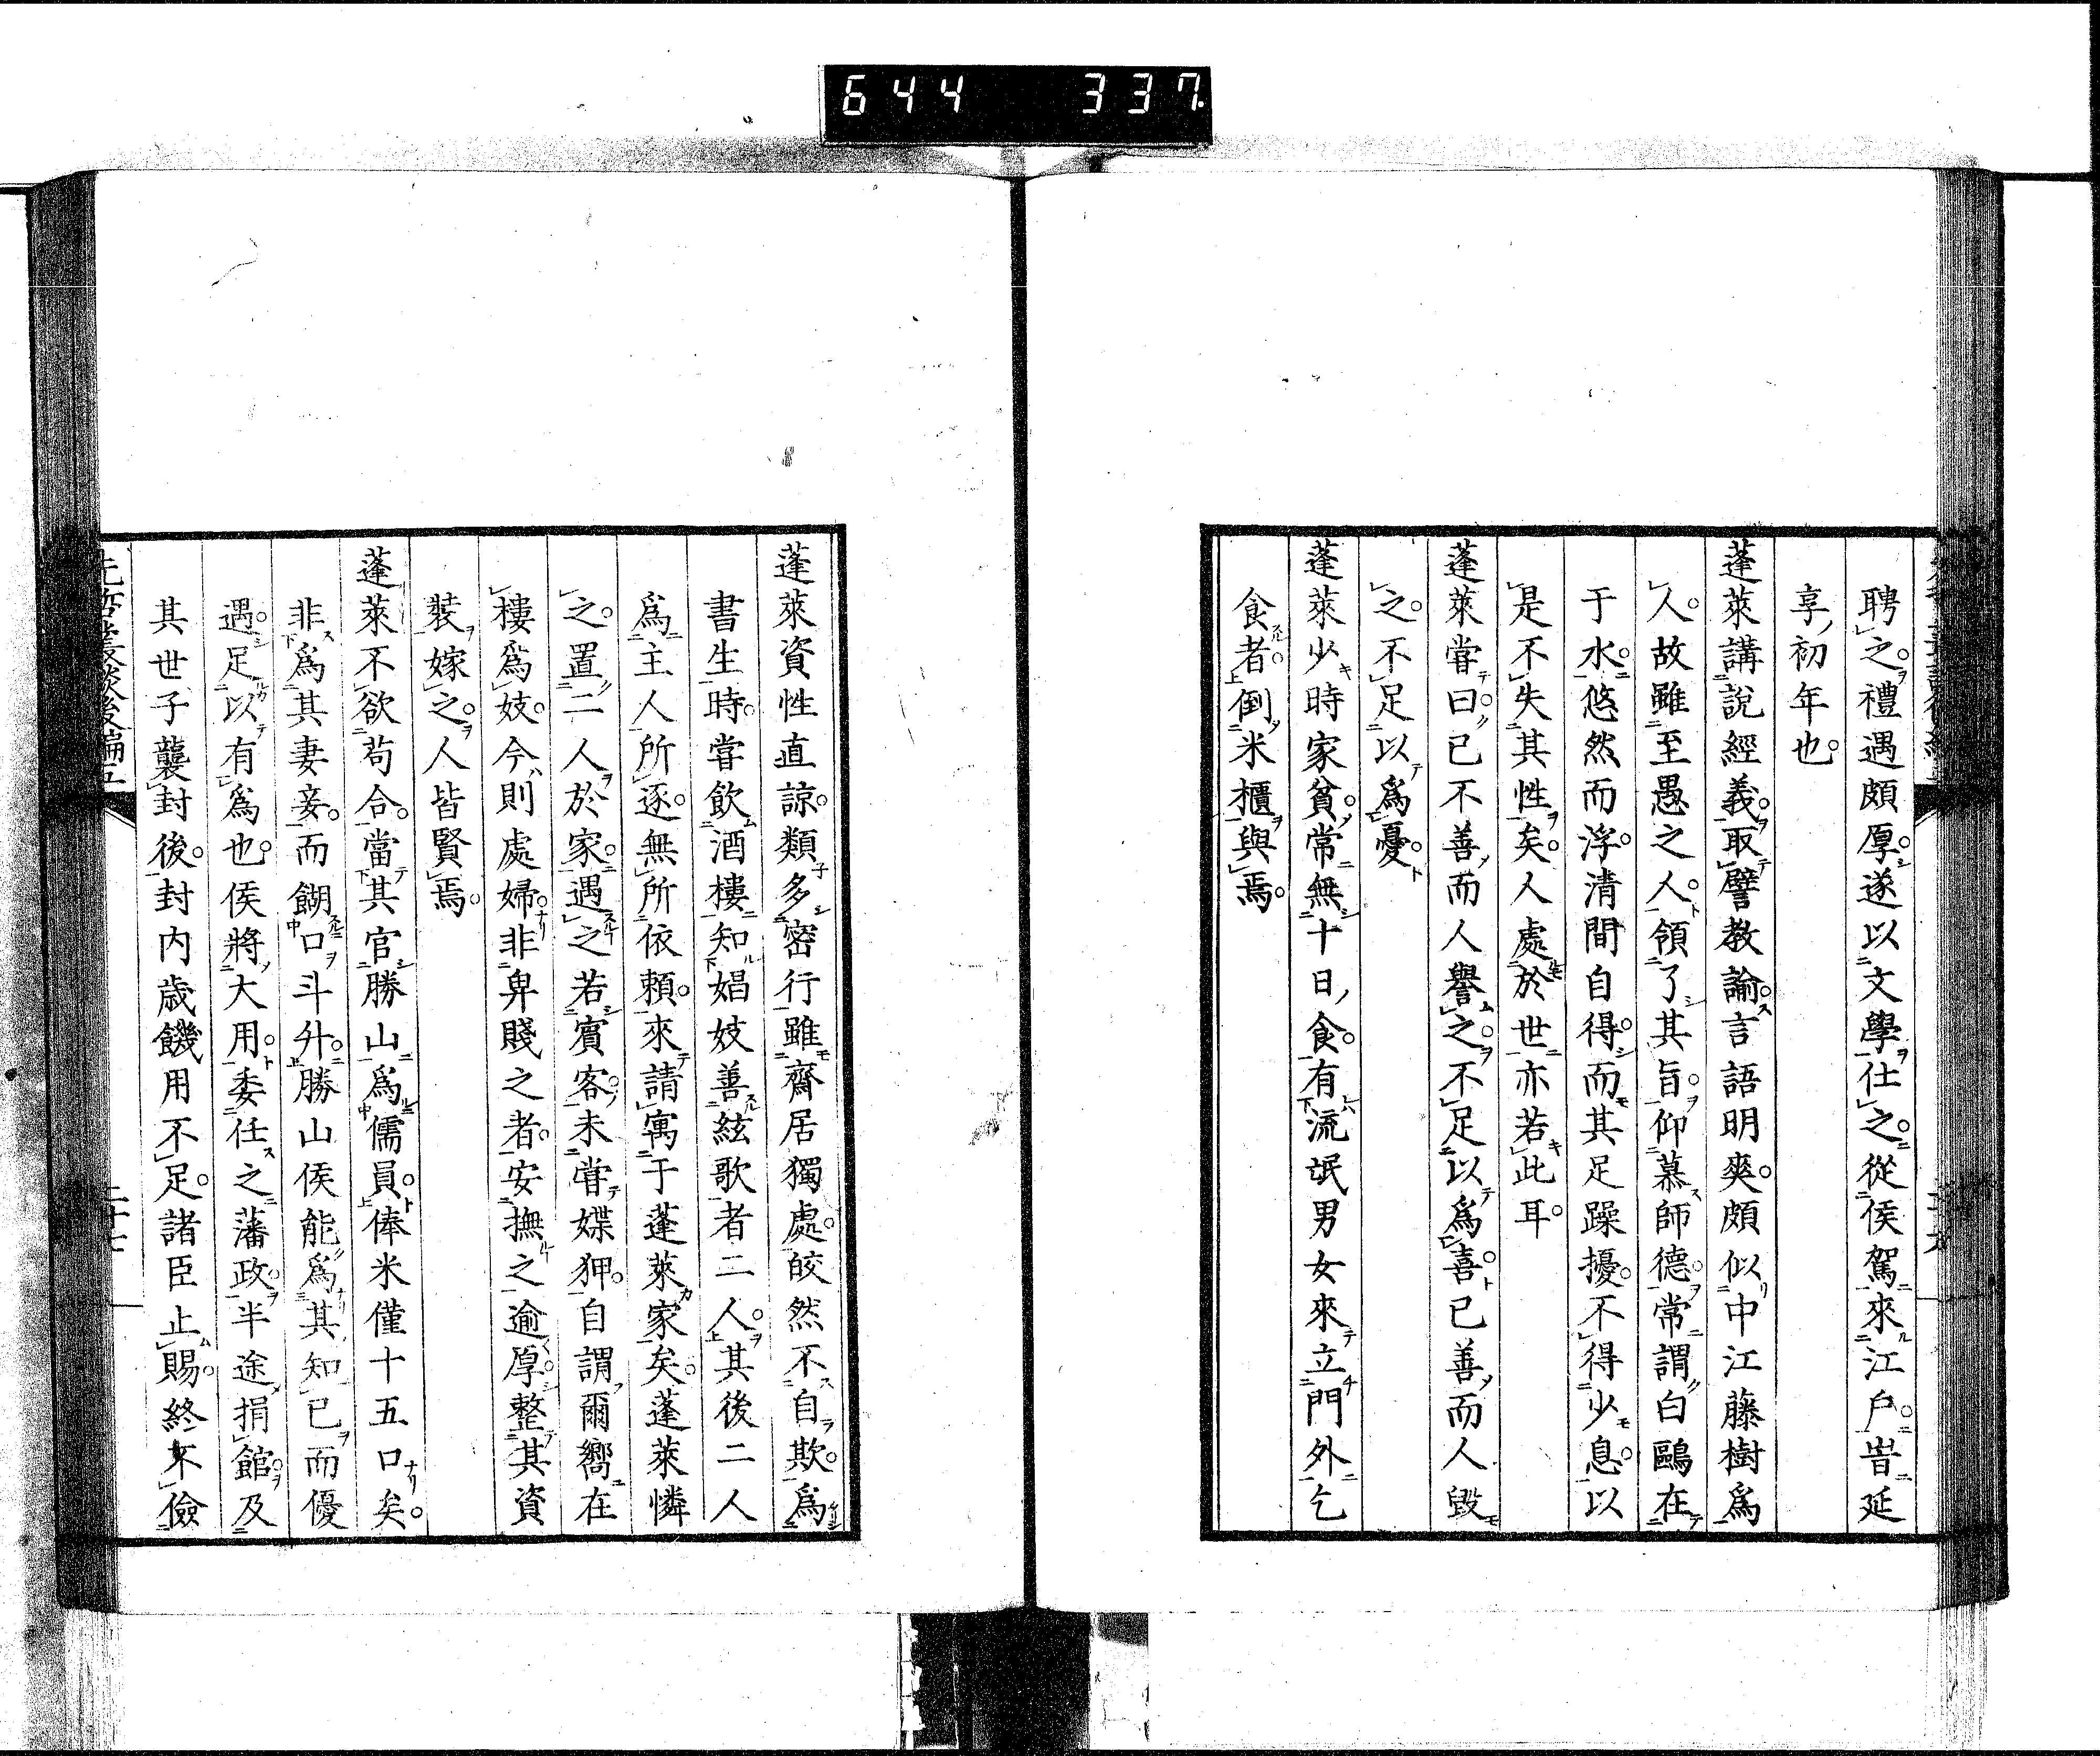 644 337
聘之禮遇頗厚遂以文學仕之從侯駕來江戶旹延
享初年也
蓬萊講說經義取譬教諭言語明爽頗似中江藤樹爲
人故雖至愚之人領了其旨仰慕師德常謂白鷗在
于水悠然而浮清間自得而其足躁擾不得少息以
是不失其性矣人處於世亦若此耳
蓬萊嘗曰己不善而人譽之不足以爲喜已善而人毀
之不足以爲憂
蓬萊少時家貧常無十日食有流氓男女來立門外乞
食者倒米櫃與焉
蓬萊資性直諒類多密行雖齋居獨處皎然不自欺爲
書生時嘗飲酒樓知娼妓善絃歌者二人其後二人
爲主人所逐無所依賴來請寓于蓬萊家矣蓬萊憐
之置二人於家遇之若賓客未嘗媟狎自謂爾嚮在
樓爲妓今則處婦非卑賤之者安撫之逾厚整其資
裝嫁之人皆賢焉
蓬萊不欲苟合當其官勝山爲儒員俸米僅十五口矣
非爲其妻妾而餬口斗升勝山侯能爲其知已而優
遇足以有爲也侯將大用委任之藩政半途捐館及
其世子襲封後封内歲饑用不足諸臣止賜終不儉
先哲叢談後編五
二十七